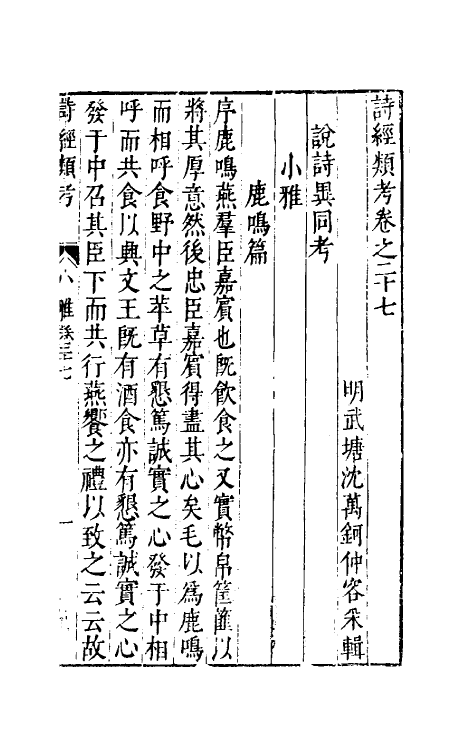 詩經類考卷之二十七
明武塘沈萬鈳仲容采輯
說詩異同考
小雅
鹿鳴篇
序鹿鳴燕羣臣嘉賓也旣飲食之又實幣帛筐篚以
將其厚意然後忠臣嘉賓得盡其心矣毛以爲鹿鳴
而相呼食野中之苹草有懇篤誠實之心發于中相
呼而共食以興文王旣有酒食亦有懇篤誠實之心
發于中召其臣下而共行燕饗之禮以致之云云故
詩經類考 小雅卷二十七 一